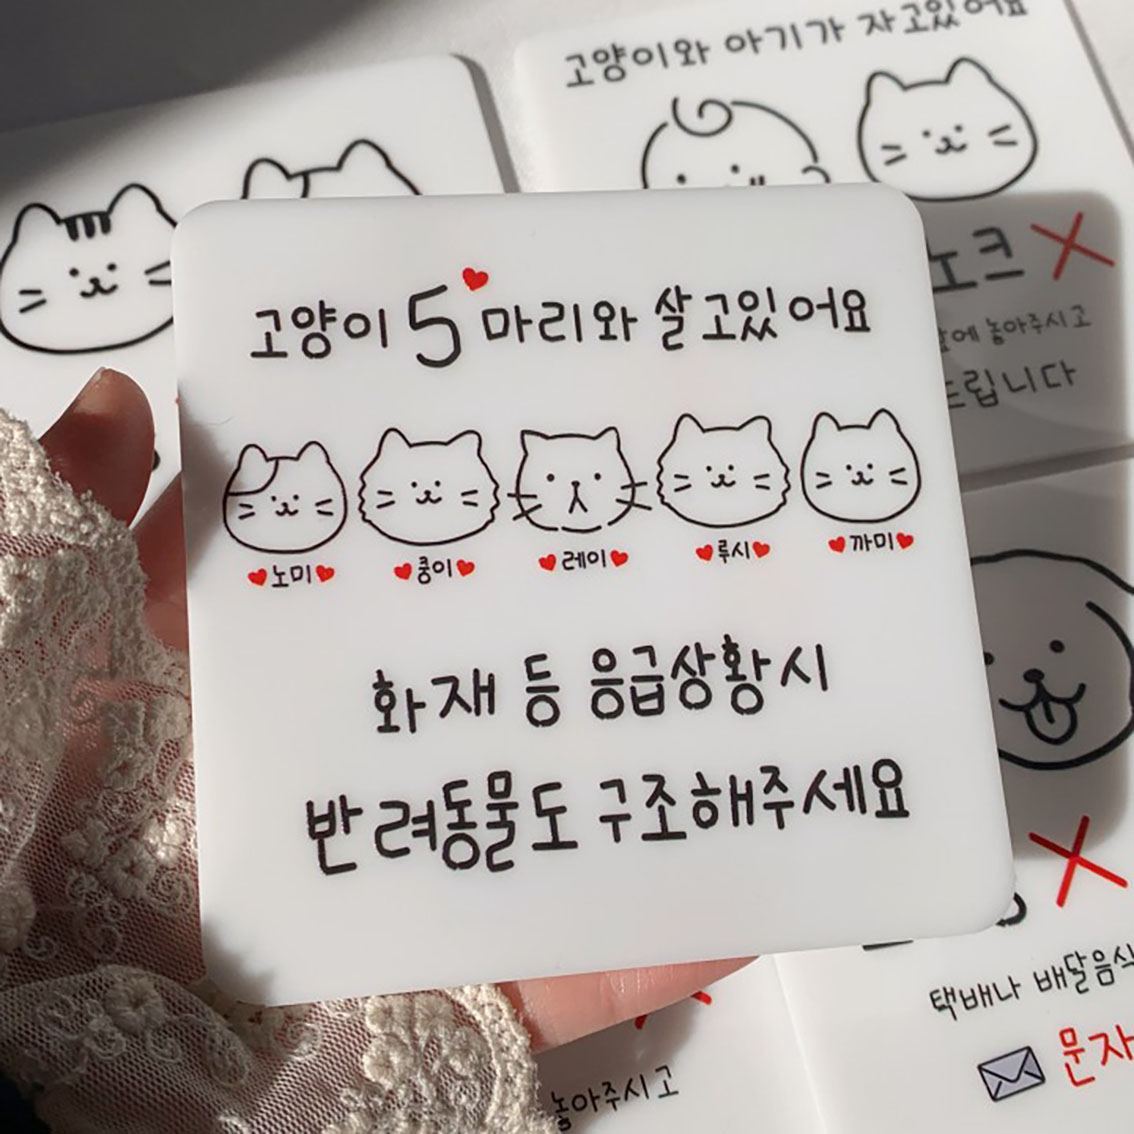 고양이와 아기가 자고있어요
노크
앞에 놓아주시고
드립니다
고양이 5 마리와 살고있어요
노미 쿵이 레이 루시 까미
화재 등 응급상황시
반려동물도 구조해주세요
택배나 배달음식
문자
놓아주시고